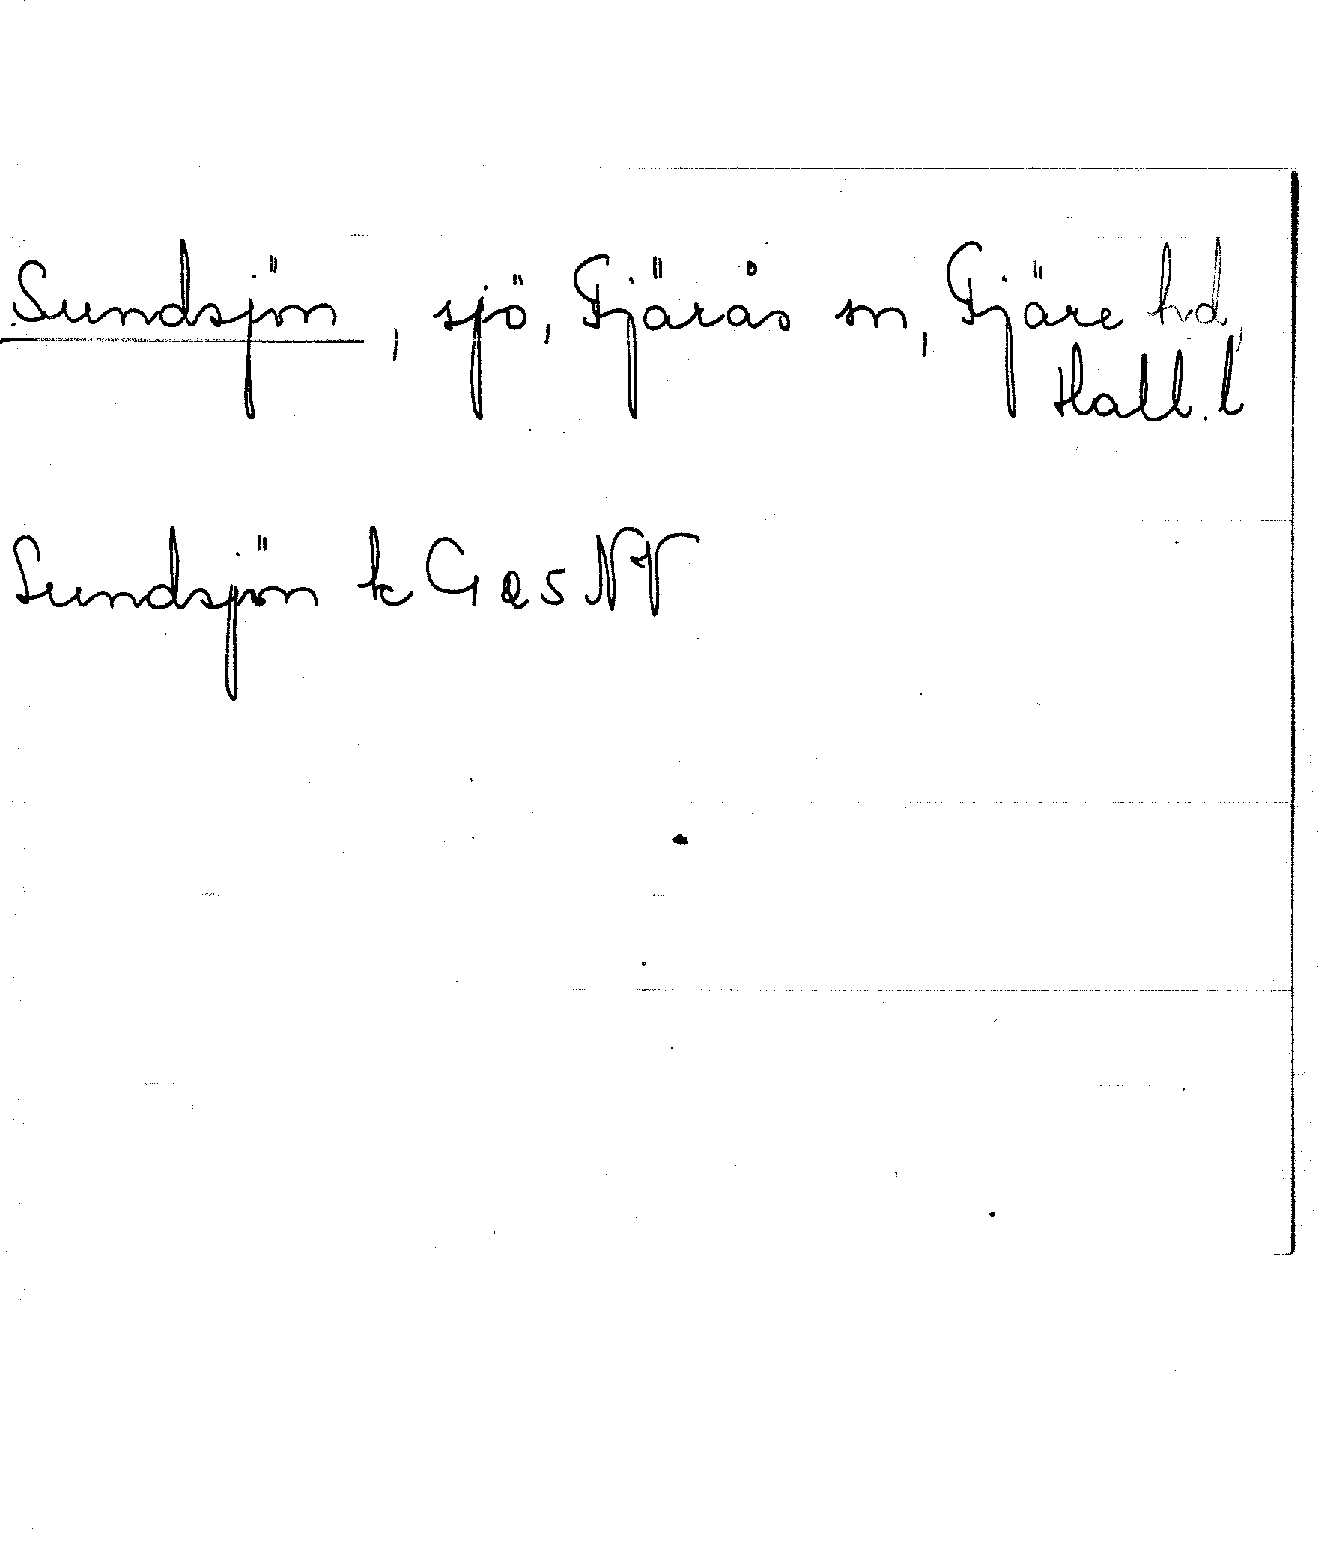 Sundsjön, sjö, Fjärås sn, Fjäre hd,
Hall. l
Sundsjön k G 25 NV